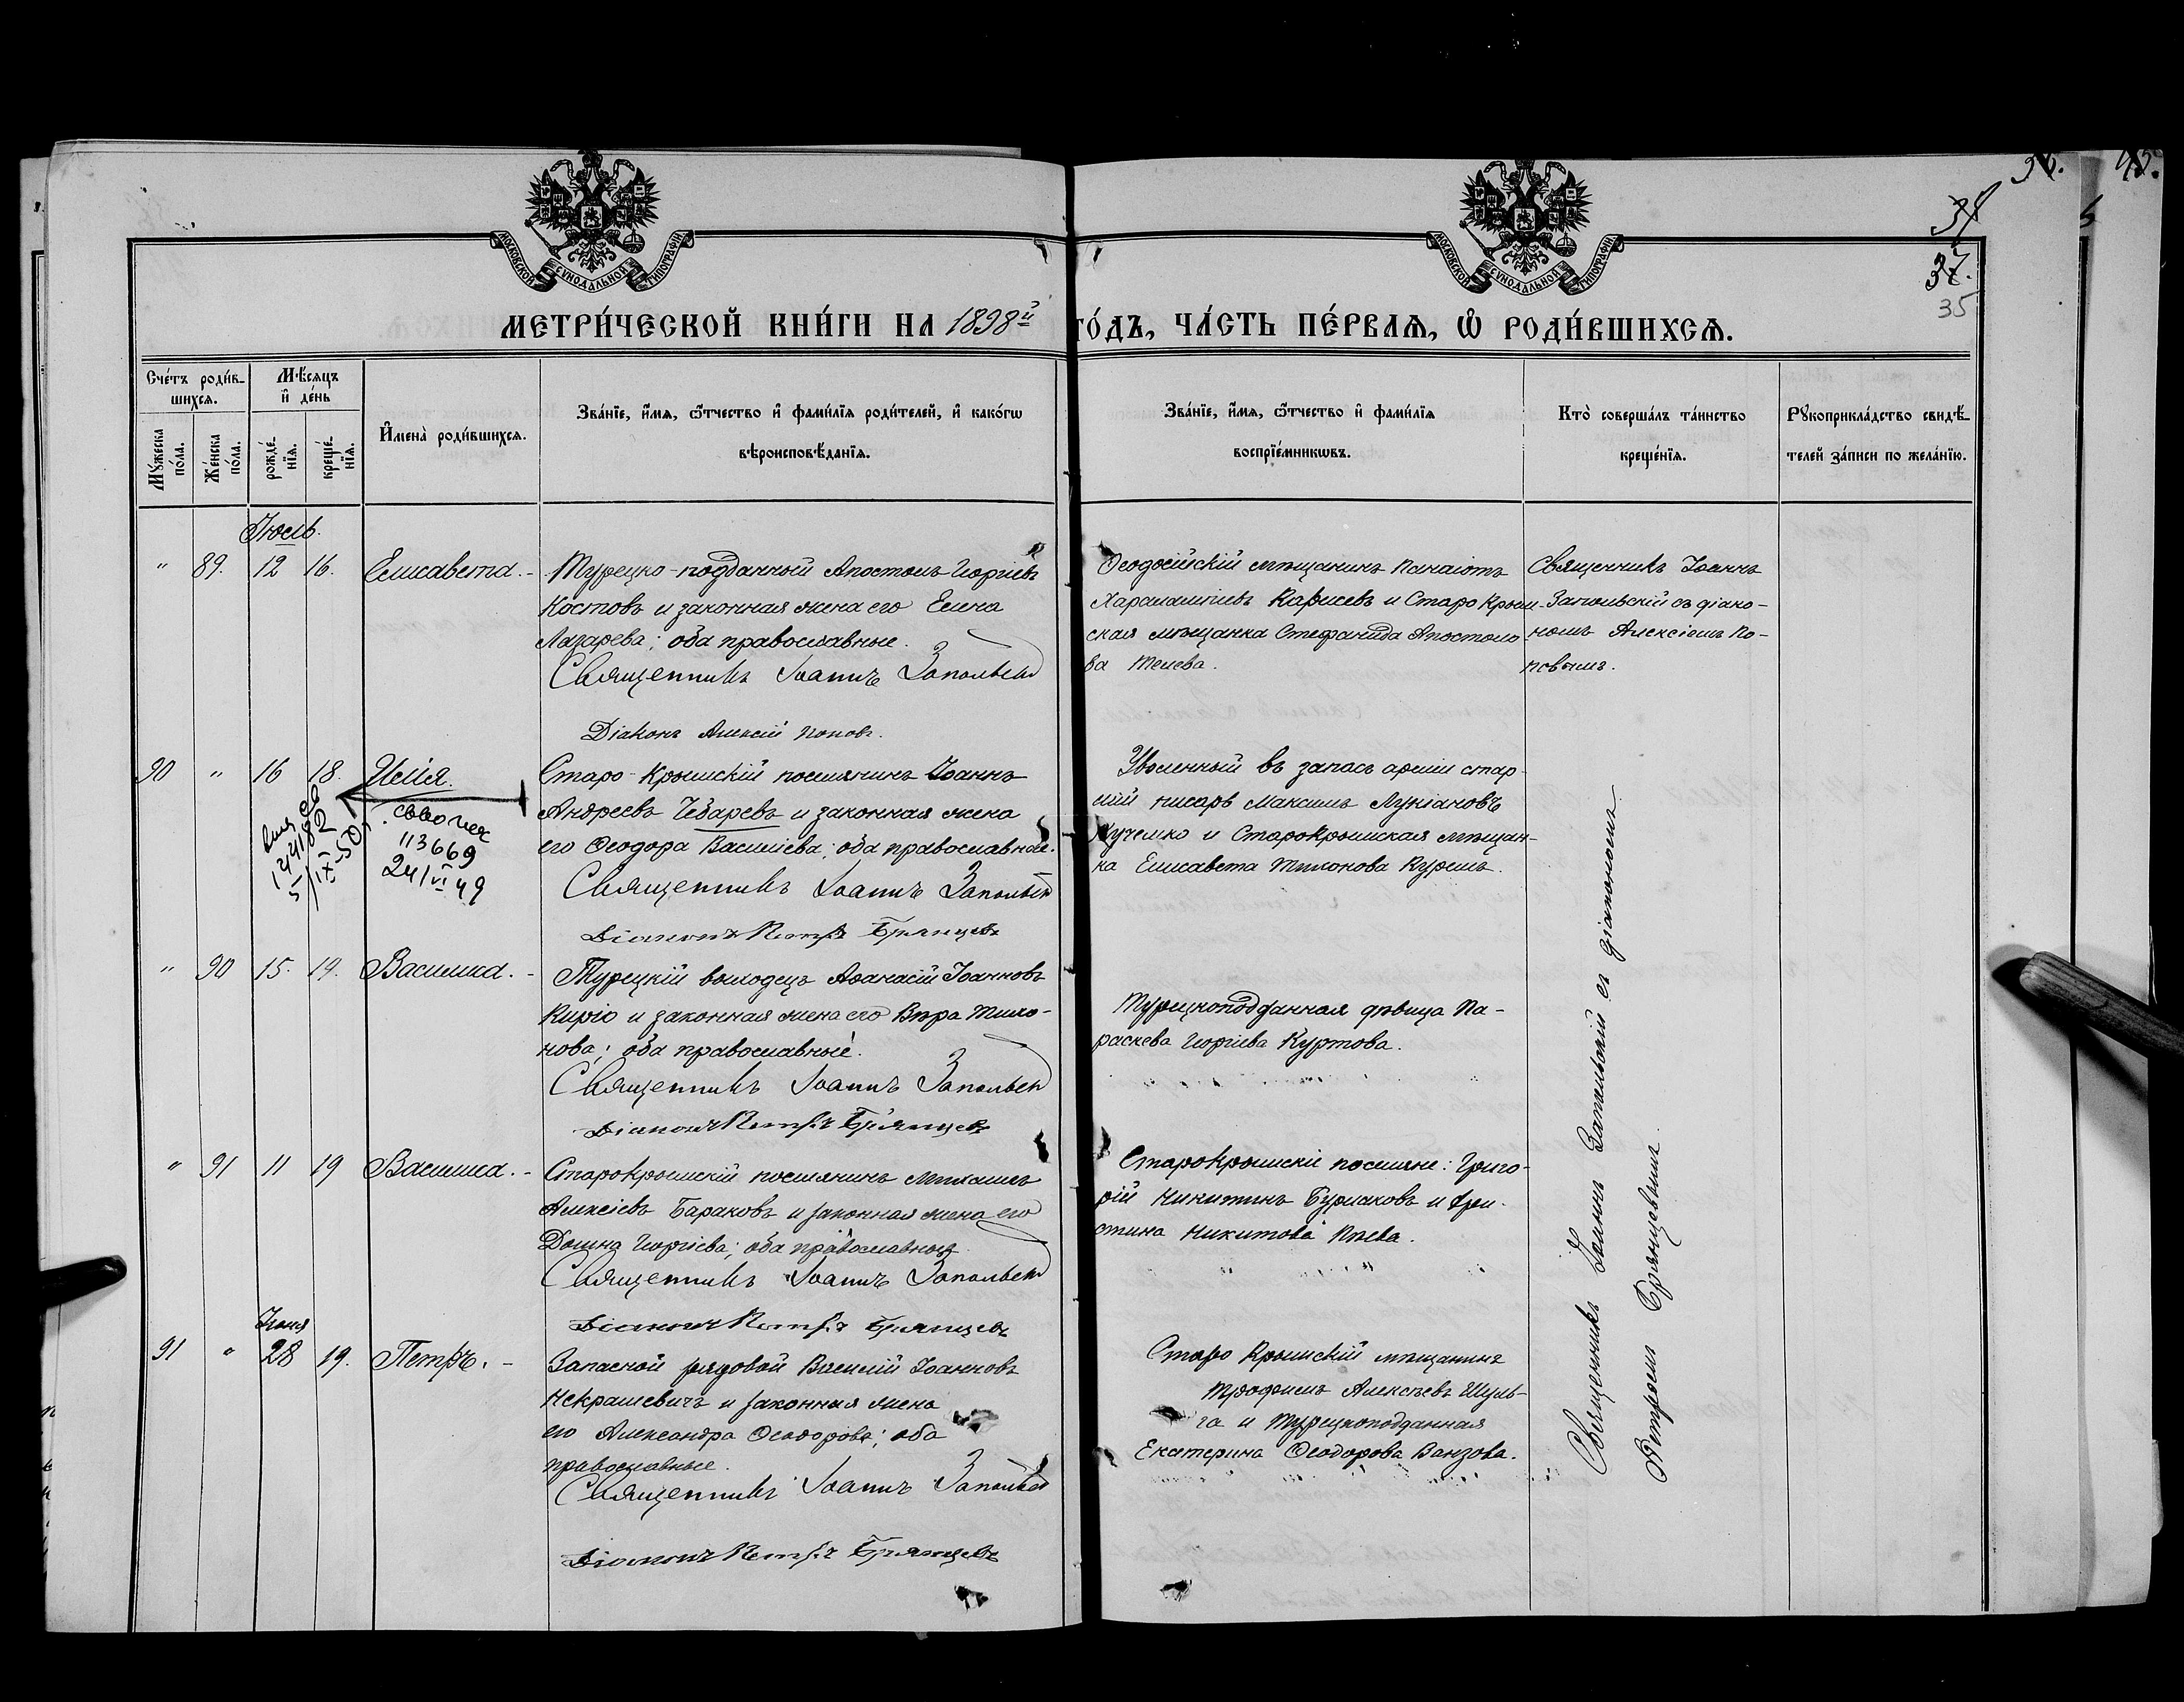 МОСКОВСКОЙ СѴНОДАЛЬНОЙ ТИПОГРАФІИ
МОСКОВСКОЙ СѴНОДАЛЬНОЙ ТИПОГРАФІИ
37.
35
МЕТРИ́ЧЕСКОЙ КНИ́ГИ НА 1898й
ГО́ДЪ, ЧА́СТЬ ПЕ́РВАѦ, Ѡ РОДИ́ВШИХСѦ.
Сче́тъ роди́в-
шихсѧ.
Мѣ́сѧцъ
и҆ де́нь
Мꙋ́жеска по́ла.
Же́нска по́ла.
рожде́-
нїѧ.
креще́-
нїѧ.
И҆мена̀ роди́вшихсѧ.
Зва́нїе, и҆́мѧ, ѻ҆́тчество и҆ фами́лїѧ роди́телей, и҆ како́гѡ
вѣроисповѣ́данїѧ.
Зва́нїе, и҆́мѧ, ѻ҆́тчество и҆ фами́лїѧ
воспрїе́мникѡвъ.
Кто̀ соверша́лъ та́инство
креще́нїѧ.
Рꙋкоприкла́дство свидѣ́-
телей за́писи по жела́нїю.
Іюль.
" 89. 12 16. Елисавета.-
Турецко-подданный Апостолъ Георгіевъ
Костовъ и законная жена его Елена
Лазарева; оба православные.
Священникъ Іоаннъ Запольскій
Діаконъ Алексій Поповъ.
Ѳеодосійскій мѣщанинъ Панаіотъ
Харалампіевъ Карисевъ и Старо Крым-
ская мѣщанка Стефанида Апостоло-
ва Телева.
Священникъ Іоаннъ
Запольскій съ діако-
номъ Алексіемъ По-
повымъ.
90 " 16 18. Илія.
144182
5/IX-50
113669
24/VI 49
Старо-Крымскій поселянинъ Іоаннъ
Андреевъ Чебаревъ и законная жена
его Ѳеодора Васильева; оба православные.
Священникъ Іоаннъ Запольскій
Діаконъ Петръ Брянцевъ
Уволенный въ запасъ арміи стар-
шій писарь Максимъ Лукіановъ
Кучемко и Старокрымская мѣщан-
ка Елисавета Тилонова Курешъ.
" 90 15. 19. Василиса.-
Турецкій выходецъ Аѳанасій Іоанновъ
Киріо и законная жена его Вѣра Тимо-
нова; оба православные.
Священникъ Іоаннъ Запольскій
Діаконъ Петръ Брянцевъ
Турецкоподданная дѣвица Па-
раскева Георгіева Куртова.
" 91 11 19 Василиса.-
Старокрымскій поселянинъ
Алексіевъ Бараковъ и законная жена его
Домна Георгіева; оба православные.
Священникъ Іоаннъ Запольскій
Діаконъ Петръ Брянцевъ
Старокрымскіе поселяне: Григо-
рій Никитинъ Бурлаковъ и Хри-
стина Никитова Пѣева.
Іюня
91 " 28 19. Петръ.-
Запасной рядовой Василій Іоанновъ
Некрашевичъ и законная жена
его Александра Ѳеодорова; оба
православные.
Священникъ Іоаннъ Запольскій
Діаконъ Петръ Брянцевъ
Старо Крымскій мѣщанинъ
Трофимъ Алексѣевъ Шуль-
га и Турецкоподданная
Екатерина Ѳеодорова Ванзова.
Священникъ Іоаннъ Запольскій съ діакономъ
Петромъ Брянцевымъ.